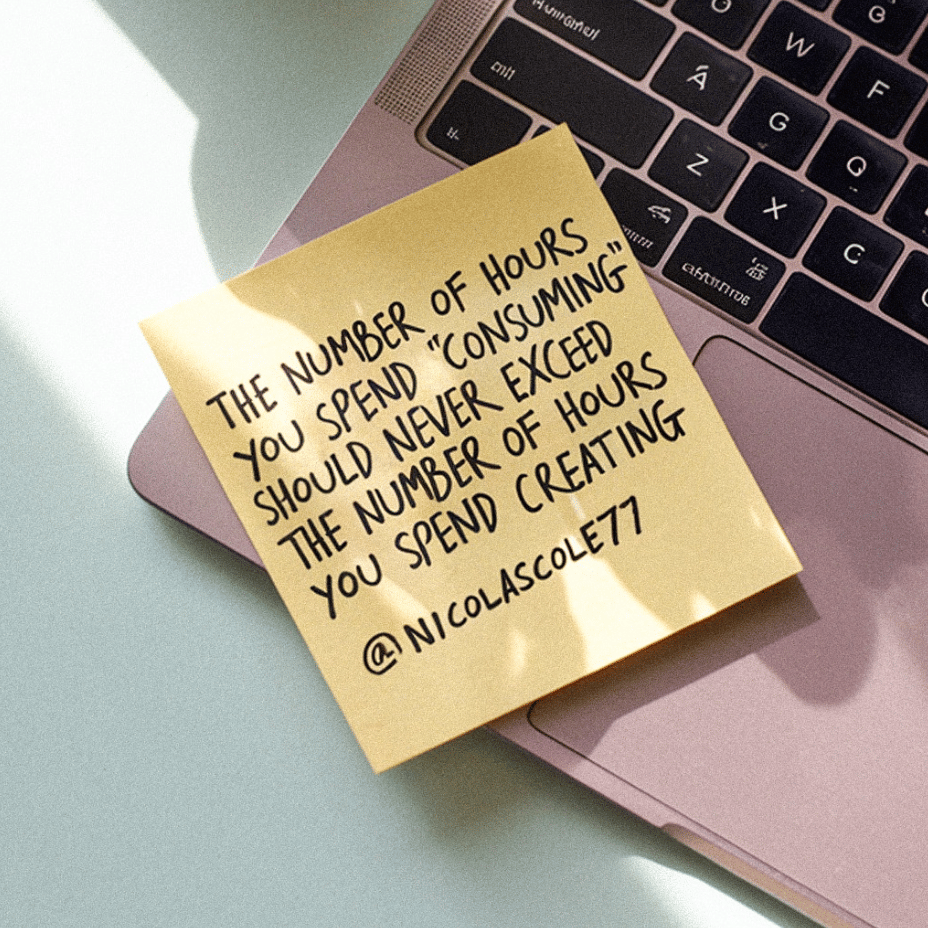 THE NUMBER OF HOURS
YOU SPEND "CONSUMING"
SHOULD NEVER EXCEED
THE NUMBER OF HOURS
YOU SPEND CREATING
@NICOLASCOLE77
W
F
G
Z
X
C